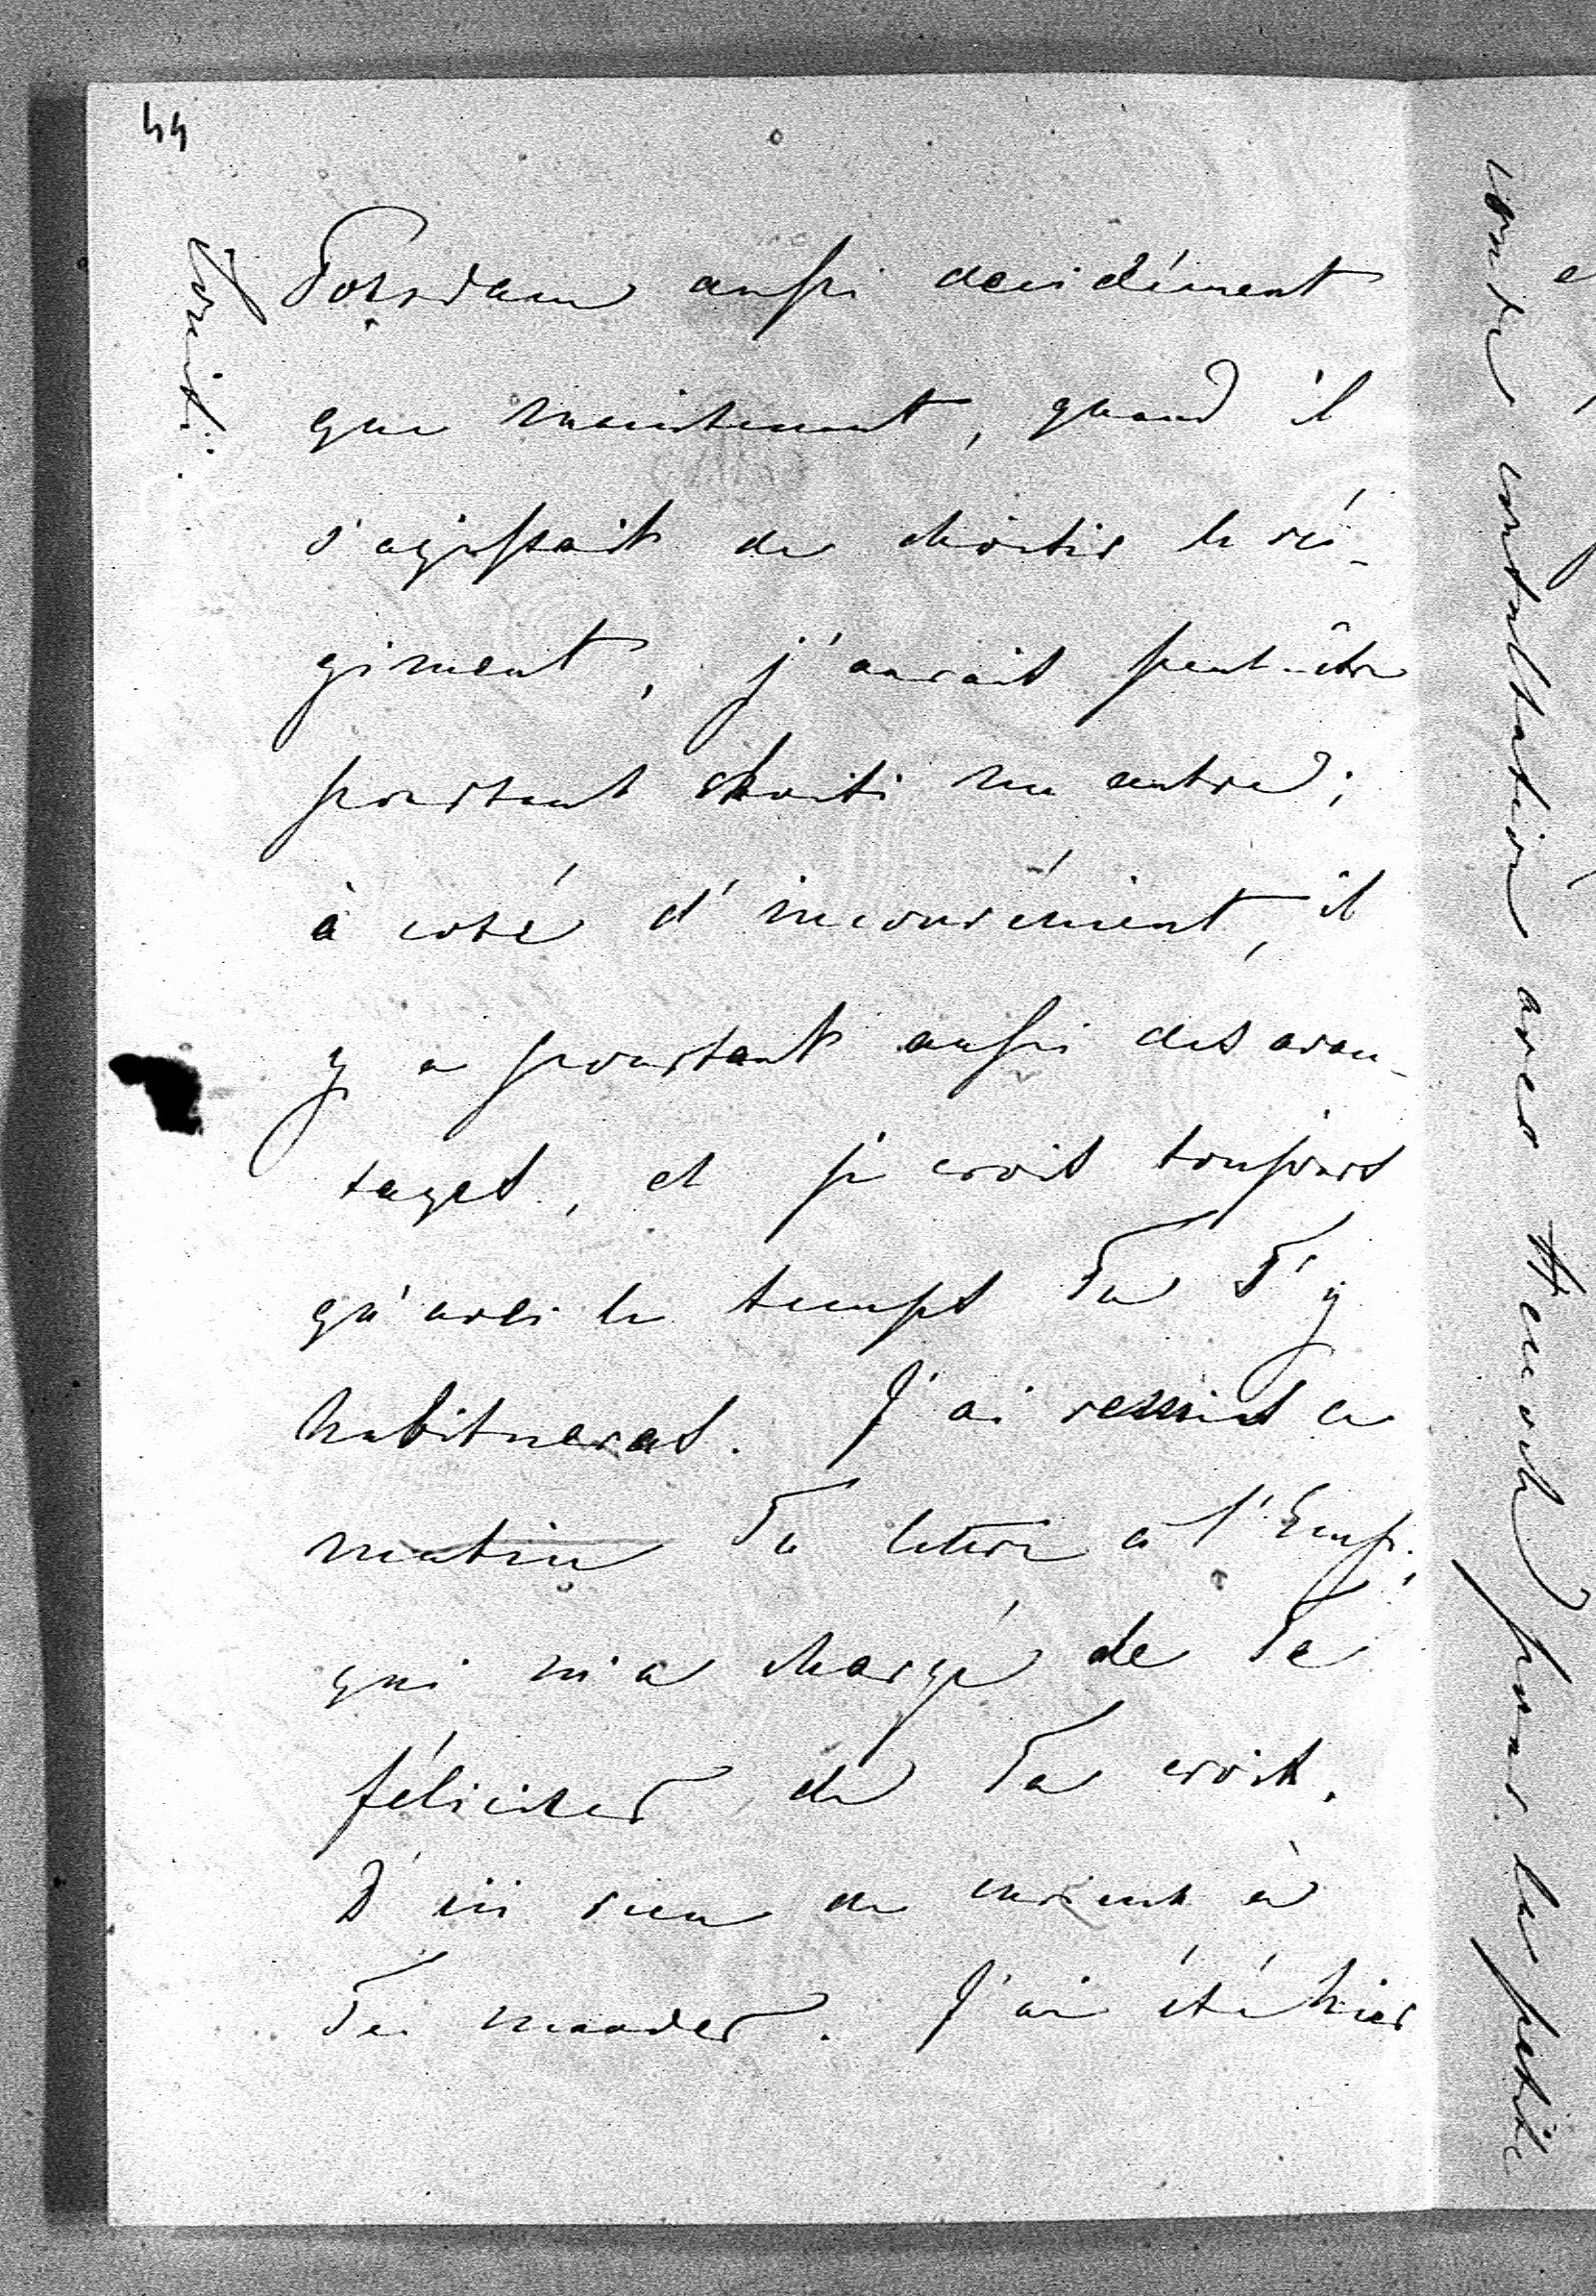 44
Potsdam aussi decidément
que maintenant, quand il
s'agissait de choisir le ré-
giment, j'aurais peut-être
pourtant choisi un autre;
à coté d'inconvénient, il
y a pourtant aussi des avan-
tages, et je crois toujours
qu'avec le temps Tu T'y
habitueras. J'ai remis ce
matin Ta lettre à l'Emp.,
qui m'a chargé de Te
féliciter de Ta croix.
D'ici rien de curieux à
Te mander. J'ai été hier
contre consultation avec Henoch pour la petite